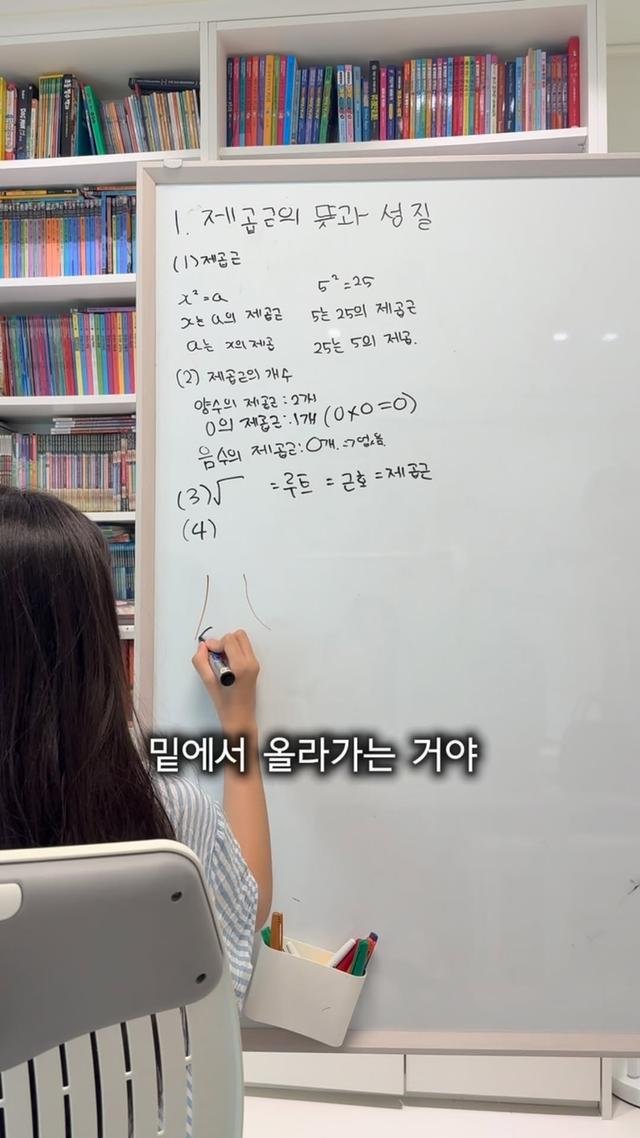 1. 제곱근의 뜻과 성질
(1) 제곱근
x²=a 5²=25
x는 a의 제곱근 5는 25의 제곱근
a는 x의 제곱 25는 5의 제곱.
(2) 제곱근의 개수
양수의 제곱근:2개
0의 제곱근:1개 (0×0=0)
음수의 제곱근:0개.⇒없음
(3) √ =루트 =근호 =제곱근
(4)
밑에서 올라가는 거야